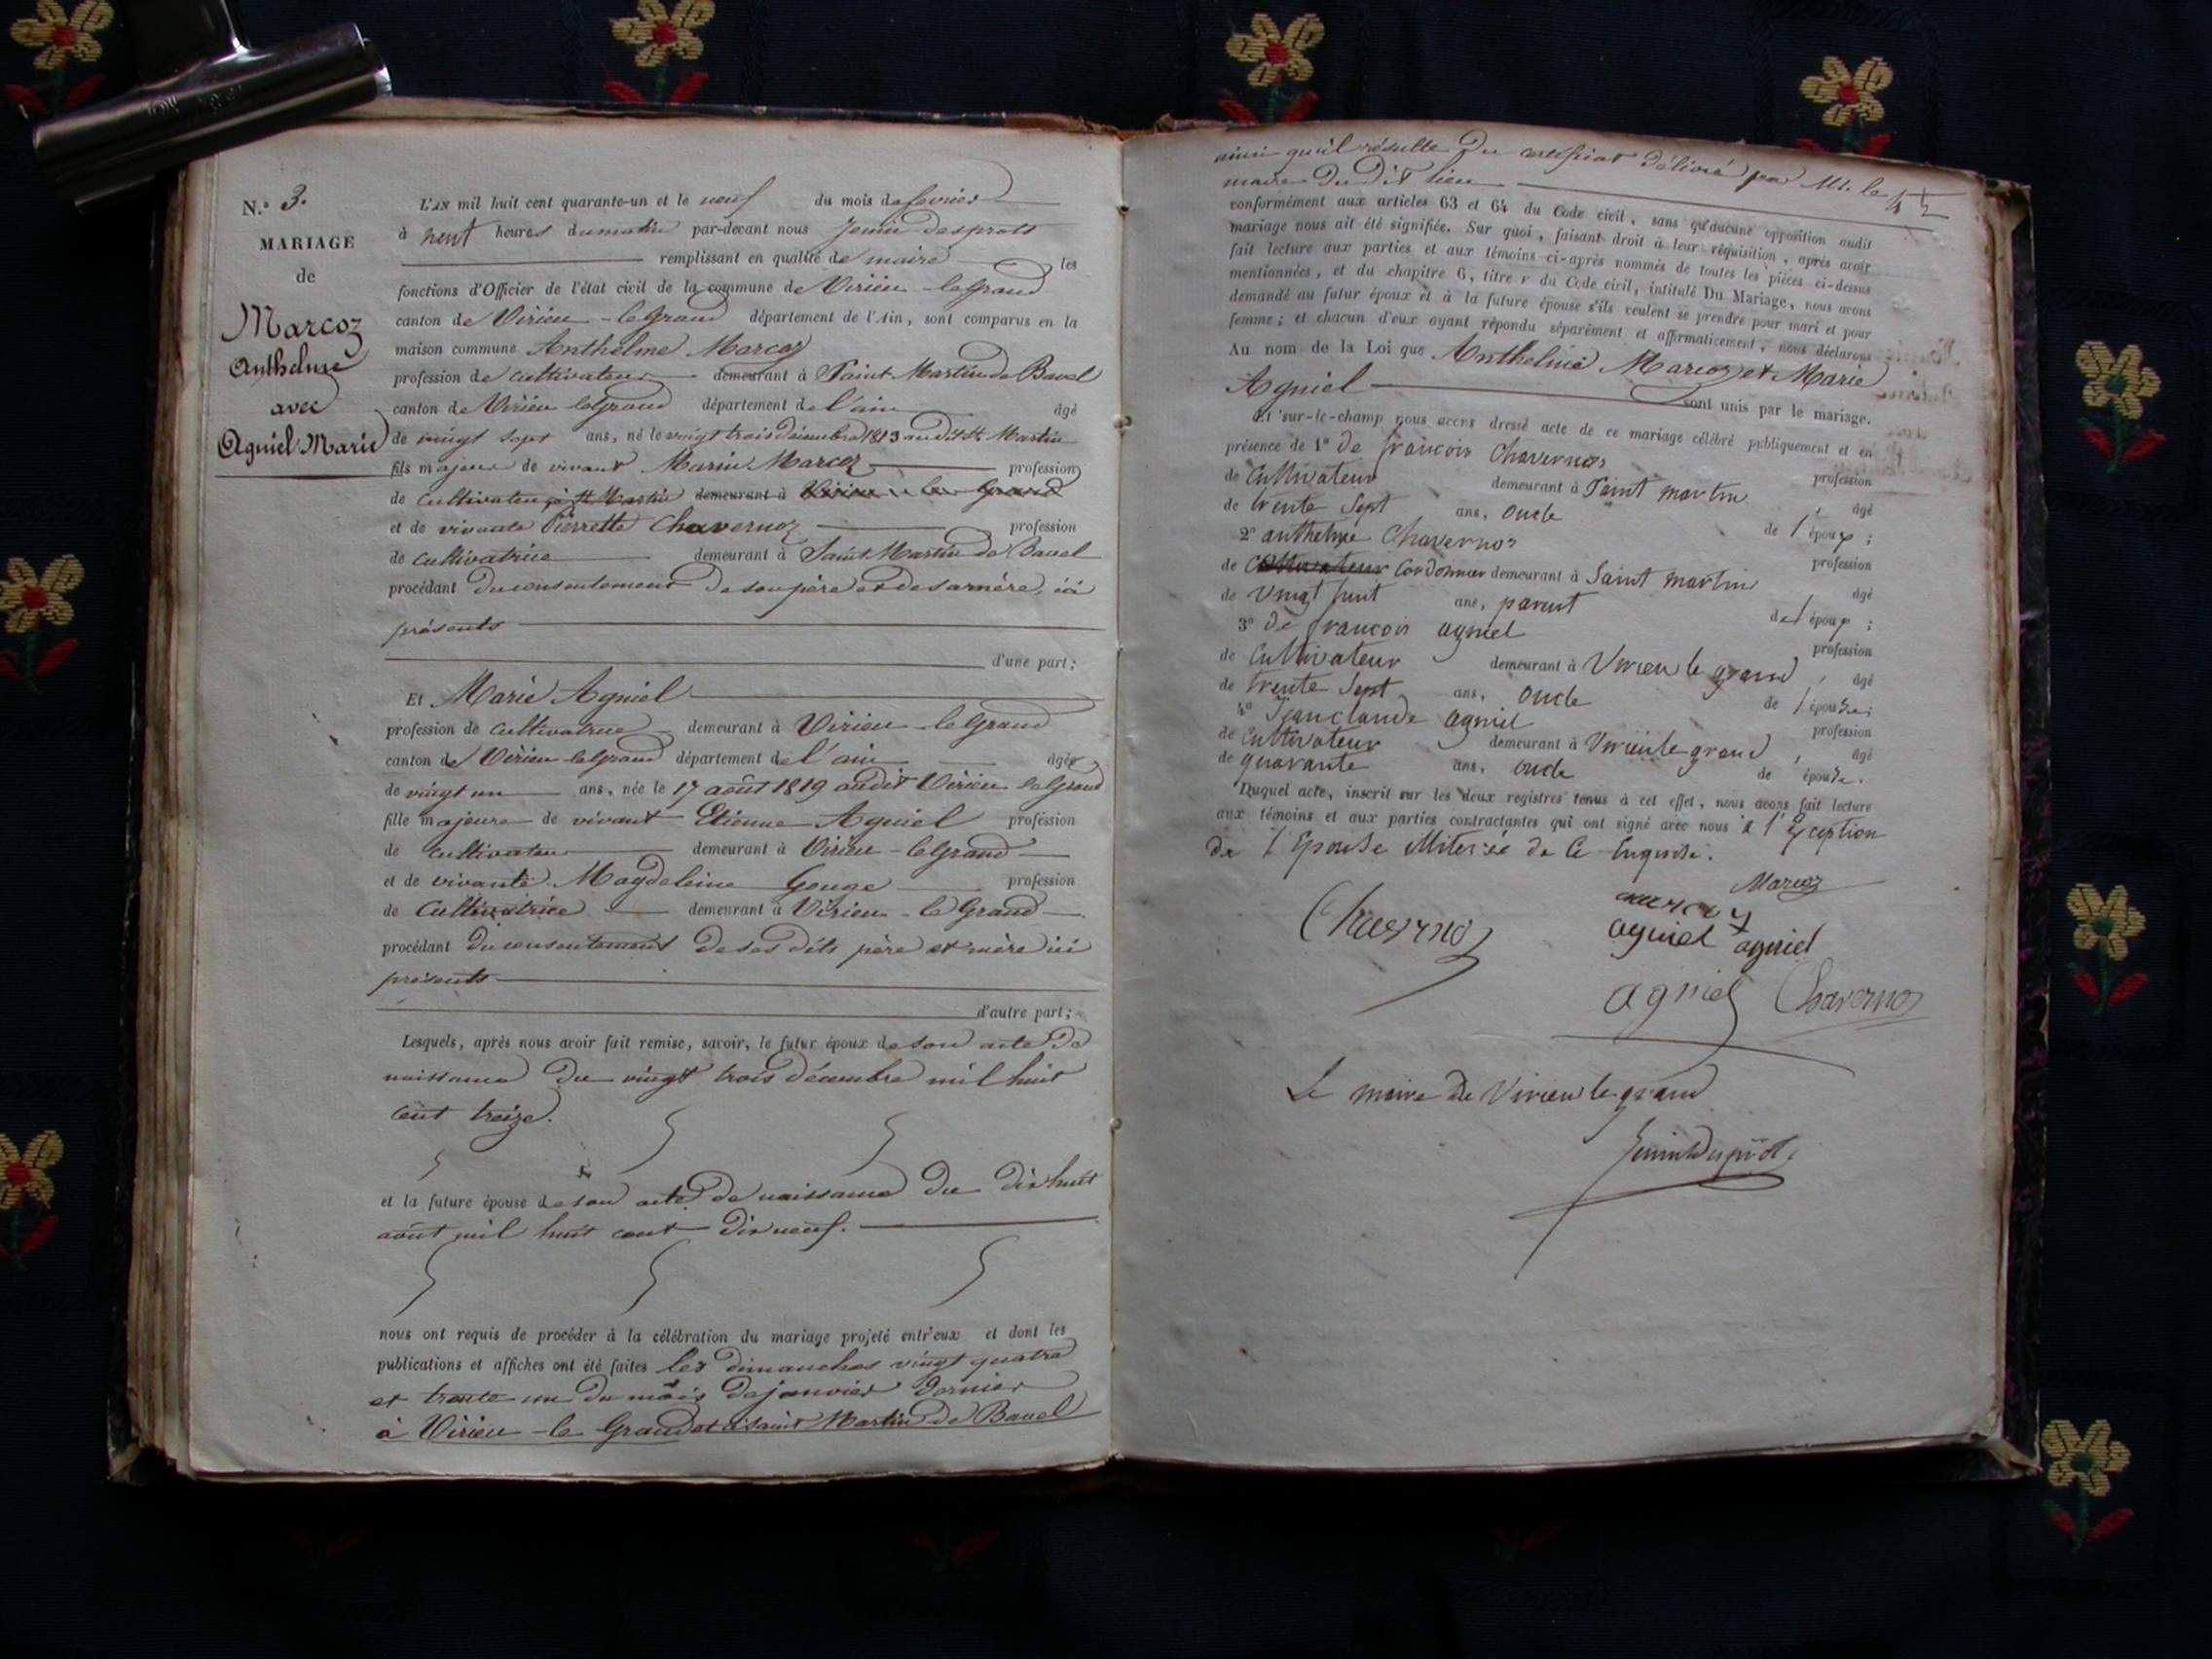 N.° 3.
MARIAGE
de
Marcoz
Anthelme
avec
Agniel Marie
L'AN mil huit cent quarante-un et le neuf du mois de fevrier
à neuf heures du matin par-devant nous Jenin desprots
remplissant en qualité de maire les
fonctions d'Officier de l'état civil de la commune de Virieu-le Grand
canton de Virieu-le Grand département de l'Ain, sont comparus en la
maison commune Anthelme Marcoz
profession de cultivateur demeurant à Saint Martin de Bavel
canton de Virieu le Grand département de l'ain âgé
de vingt sept ans, né le vingt trois décembre 1813 audit St. Martin
fils majeur de vivant Marin Marcoz profession
de cultivateur, à St Martin demeurant à Virieu le Grand
et de vivante Pierrette Chavernoz profession
de cultivatrice demeurant à Saint Martin de Bavel
procédant du consentement de son père et de sa mère, ici
présents
d'une part;
Et Marie Agniel
profession de cultivatrice demeurant à Virieu-le Grand
canton de Virieu le Grand département de l'ain âgée
de vingt un ans, née le 17 août 1819 audit Virieu le Grand
fille majeure de vivant Etienne Agniel profession
de cultivateur demeurant à Virieu-le Grand
et de vivante Magdeleine Gouge profession
de Cultivatrice demeurant à Virieu-le Grand
procédant du consentement de ses dits père et mère ici
présents
d'autre part;
Lesquels, après nous avoir fait remise, savoir, le futur époux de son acte de
naissance du vingt trois décembre mil huit
cent treize.
et la future épouse de son acte de naissance du dix huit
août mil huit cent dix neuf.
nous ont requis de procéder à la célébration du mariage projeté entr'eux et dont les
publications et affiches ont été faites les dimanches vingt quatre
et trente un du mois de janvier dernier
à Virieu-le Grand et à Saint Martin de Bavel
ainsi qu'il résulte du certificat délivré par M. le
maire du dit lieu
conformément aux articles 63 et 64 du Code civil, sans qu'aucune opposition audit
mariage nous ait été signifiée. Sur quoi, faisant droit à leur réquisition, après avoir
fait lecture aux parties et aux témoins ci-après nommés de toutes les pièces ci-dessus
mentionnées, et du chapitre 6, titre v du Code civil, intitulé Du Mariage, nous avons
demandé au futur époux et à la future épouse s'ils veulent se prendre pour mari et pour
femme; et chacun d'eux ayant répondu séparément et affirmativement, nous déclarons
Au nom de la Loi que Anthelme Marcoz et Marie
Agniel sont unis par le mariage.
Et sur-le-champ nous avons dressé acte de ce mariage célébré publiquement et en
présence de 1° de françois Chavernoz profession
de Cultivateur demeurant à Saint martin âgé
de trente Sept ans, oncle de l'époux;
2° anthelme Chavernoz profession
de Cultivateur Cordonnier demeurant à Saint martin âgé
de Vingt huit ans, parent de l'époux;
3° de françois agniel profession
de Cultivateur demeurant à Virieu le grand, âgé
de trente Sept ans, oncle de l'épouse;
4° Jean claude agniel profession
de cultivateur demeurant à Virieu le grand, âgé
de quarante ans, oncle de épouse.
Duquel acte, inscrit sur les deux registres tenus à cet effet, nous avons fait lecture
aux témoins et aux parties contractantes qui ont signé avec nous a l'Exception
de l'Epouse illiterée de ce Enquise.
Marcoz
Chavernoz
agniel agniel
agniel Chavernoz
Le maire de Virieu le grand